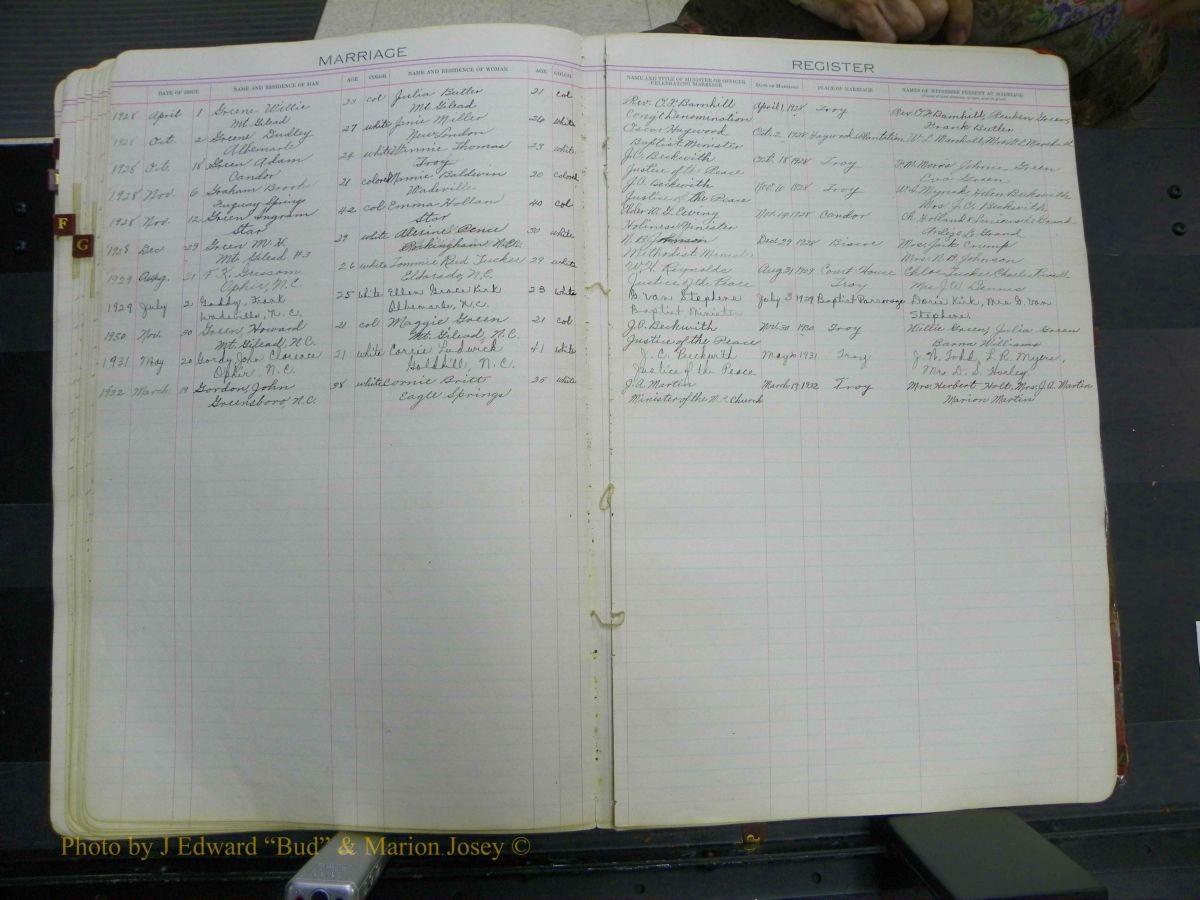 MARRIAGE
REGISTER
DATE OF ISSUE NAME AND RESIDENCE OF MAN AGE COLOR NAME AND RESIDENCE OF WOMAN AGE COLOR
NAME AND TITLE OF MINISTER OR OFFICER CELEBRATING MARRIAGE DATE OF MARRIAGE PLACE OF MARRIAGE NAMES OF WITNESSES PRESENT AT MARRIAGE
1928 April 1 Greene Willie 23 col Julia Butler 21 col Rev. O.F. Barnhill April 1, 1928 Troy Rev. O.F. Barnhill, Reuben Greene,
Mt. Gilead Mt. Gilead Cong'l Denomination Frank Butler
1928 Oct. 2 Greene Dudley 27 white Janie Miller 26 white Oscar Haywood Oct. 2, 1928 Haywood Plantation W.L. Marshall,
Albemarle New London Baptist Minister
1928 Oct. 18 Green Adam 24 white Minnie Thomas 23 white J.C. Beckwith Oct. 18 1928 Troy Johnie Green
Candor Troy Justice of the Peace Green
1928 Nov. 6 Graham Brooks 21 colored Mamie Baldwin 20 colored J.C. Beckwith Nov. 10 1928 Troy Helen Beckwith
Fuquay Springs Wadeville Justice of the Peace Mrs. J.C. Beckwith
1928 Nov. 12 Green Ingram 42 col Emma Holland 40 col Elder W.G. Ewing Nov. 14 1928 Candor
Star Star Holiness Minister
1928 Dec 29 Green M. H. 29 white 30 white N. B. Johnson Dec 29 1928 Biscoe Mrs. Jack Crump
Mt. Gilead #3 Rockingham N.C. Methodist Minister Mrs. N. B. Johnson
1929 Aug. 21 F. K. Gressom 26 white Tommie Reid Tucker 29 white W. H. Reynolds Aug 21 1929 Court House Chloe Tucker
Ophir, N.C. Eldorado, N.C. Justice of the Peace Troy Mrs J.W. Dennis
1929 July 2 Gaddy, Frank 25 white Ellen Grace Kirk 23 white G. Van Stephens July 3 1929 Baptist Parsonage Doris Kirk, Mrs G. Van
Wadeville, N.C. Albemarle, N.C. Baptist Minister Stephens
1930 Nov. 30 Green, Howard 21 col Maggie Green 21 col J.C. Beckwith Nov. 30 1930 Troy Willie Green, Julia Green
Mt. Gilead, N.C. Mt. Gilead, N.C. Justice of the Peace Williams
1931 May 20 Gordy John Clarence 21 white Carrie Ludwick 41 white J. C. Beckwith May 20 1931 Troy J. W. Todd, L.R. Myers,
Ophir, N.C. Goldhill, N.C. Justice of the Peace Mrs D. S. Hurley
1932 March 19 Gordon, John 38 white Britt 25 white J.A. Martin March 19, 1932 Troy Mrs. Herbert Holt, Mrs. J.A. Martin
Greensboro, N.C. Eagle Springs Minister of the M.E. Church Marion Martin
F
G
Photo by J Edward “Bud” & Marion Josey ©